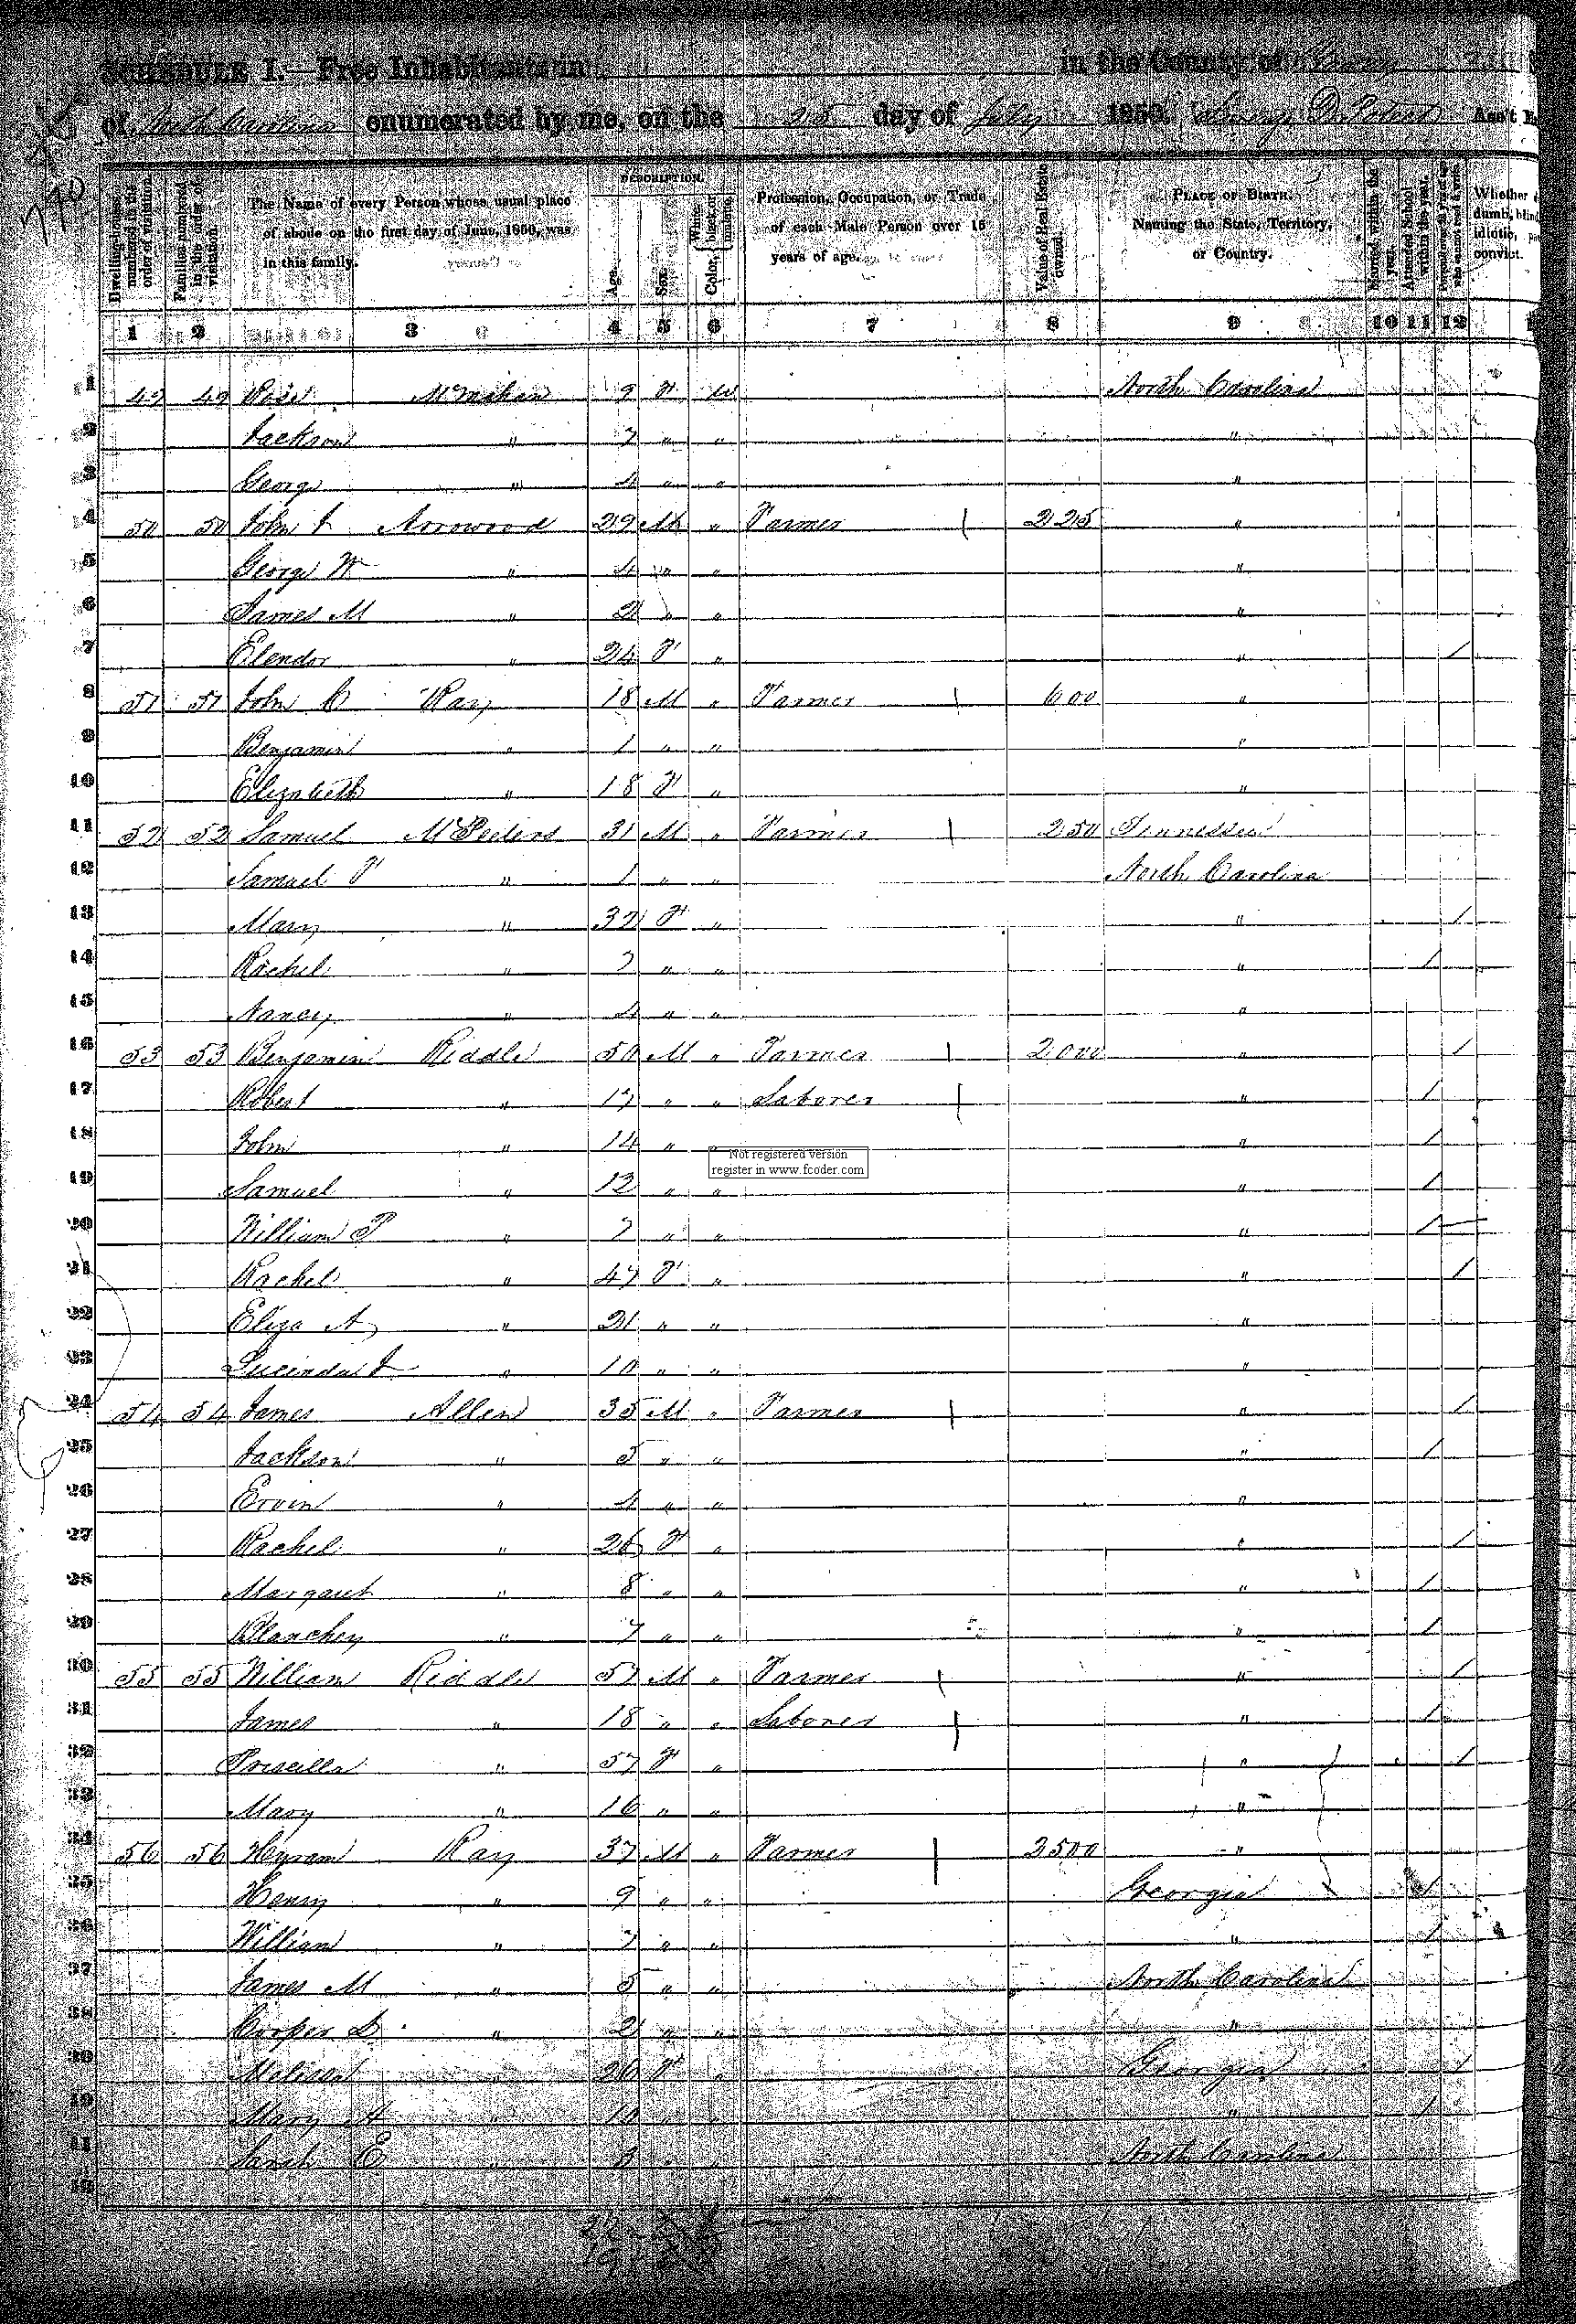 SCHEDULE I.—Free Inhabitants in in the County of Yancey
of North Carolina enumerated by me, on the 25 day of July 1850. Ass't
DESCRIPTION.
Dwelling-houses numbered in the order of visitation.
Families numbered in the order of visitation.
The Name of every Person whose usual place of abode on the first day of June, 1850, was in this family.
Age.
Sex.
Color, White, black, or mulatto.
Profession, Occupation, or Trade of each Male Person over 15 years of age.
Value of Real Estate owned.
PLACE OF BIRTH. Naming the State, Territory, or Country.
Married within the year.
Attended School within the year.
Persons over 20 y'rs of age who cannot read & write.
Whether dumb, blind, idiotic, convict.
1 2 3 4 5 6 7 8 9 10 11 12
1 49 49 9 W North Carolina
2 Jackson " 7 " " "
3 George " 4 " " "
4 50 50 John Arrowood 29 M " Farmer 225 "
5 George W " 4 " " "
6 James M " 2 " " "
7 Elendor " 24 F " " /
8 51 51 John Ray 18 M " Farmer 600 "
9 Benjamin " 1 " " "
10 Elizabeth " 18 F " "
11 52 52 Samuel McPeeters 31 M " Farmer 250 Tennessee
12 Samuel " 1 " " North Carolina
13 Mary " 32 F " " /
14 Rachel " 7 " " " /
15 Nancy " 4 " " "
16 53 53 Benjamin Riddle 50 M " Farmer 2000 " /
17 Robert " 17 " " Laborer " /
18 John " 14 " " " /
19 Samuel " 12 " " " /
20 William P " 7 " " " /
21 Rachel " 47 F " " /
22 Eliza A " 21 " " "
23 Lucinda J " 10 " " "
24 54 54 James Allen 35 M " Farmer " /
25 Jackson " 5 " " " /
26 Ervin " 4 " " "
27 Rachel " 26 F " " /
28 Margaret " 8 " " " /
29 Blanchey " 7 " " " /
30 55 55 William Riddle 57 M " Farmer " /
31 James " 18 " " Laborer " /
32 Priscilla " 57 F " " /
33 Mary " 16 " " "
34 56 56 Hyram Ray 37 M " Farmer 3500 "
35 Henry " 9 " " Georgia /
36 William " 7 " " " /
37 James M " 5 " " North Carolina
38 Cooper D " 2 " " "
39 " 26 F " Georgia /
40 Mary A " 10 " " " /
41 Sarah E " North Carolina
42
Not registered version
register in www.fcoder.com